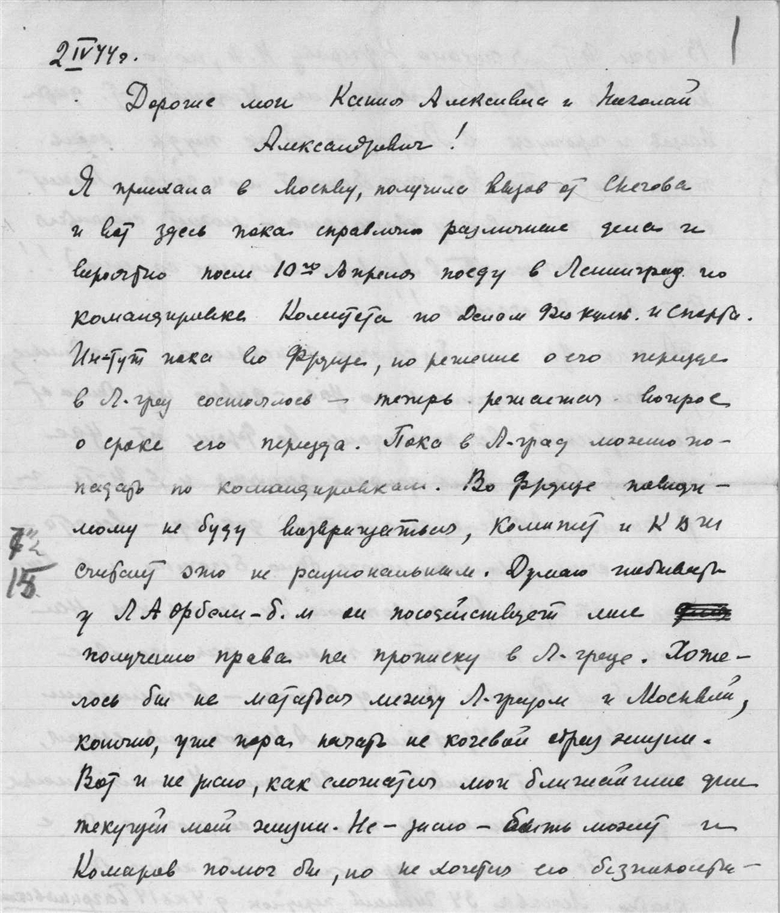 1
2 IV 44 г.
Дорогие мои Ксения Алексеевна и Николай
Александрович!
Я приехала в Москву, получила вызов от Снегова
и вот здесь пока справляю различные дела и
вероятно после 10го Апреля поеду в Ленинград по
командировке Комитета по Делам Физ культ. и спорта.
Ин-тут пока во Фрунзе, но решение о его переезде
в Л-град состоялось — теперь решается вопрос
о сроке его переезда. Пока в Л-град можно по-
падать по командировкам. Во Фрунзе повиди-
мому не буду возвращаться, Комитет и
считает это не рациональным. Думаю побывать
у Л А Орбели - б. м он посодействует мне
получению права на прописку в Л-граде. Хоте-
лось бы не мотаться между Л-градом и Москвой,
конечно, уже пора начать не кочевой образ жизни.
Вот и не ясно, как сложатся мои ближайшие дни
текущей моей жизни. Не-ясно - быть может и
Комаров помог бы, но не хочется его безпокоить -
15